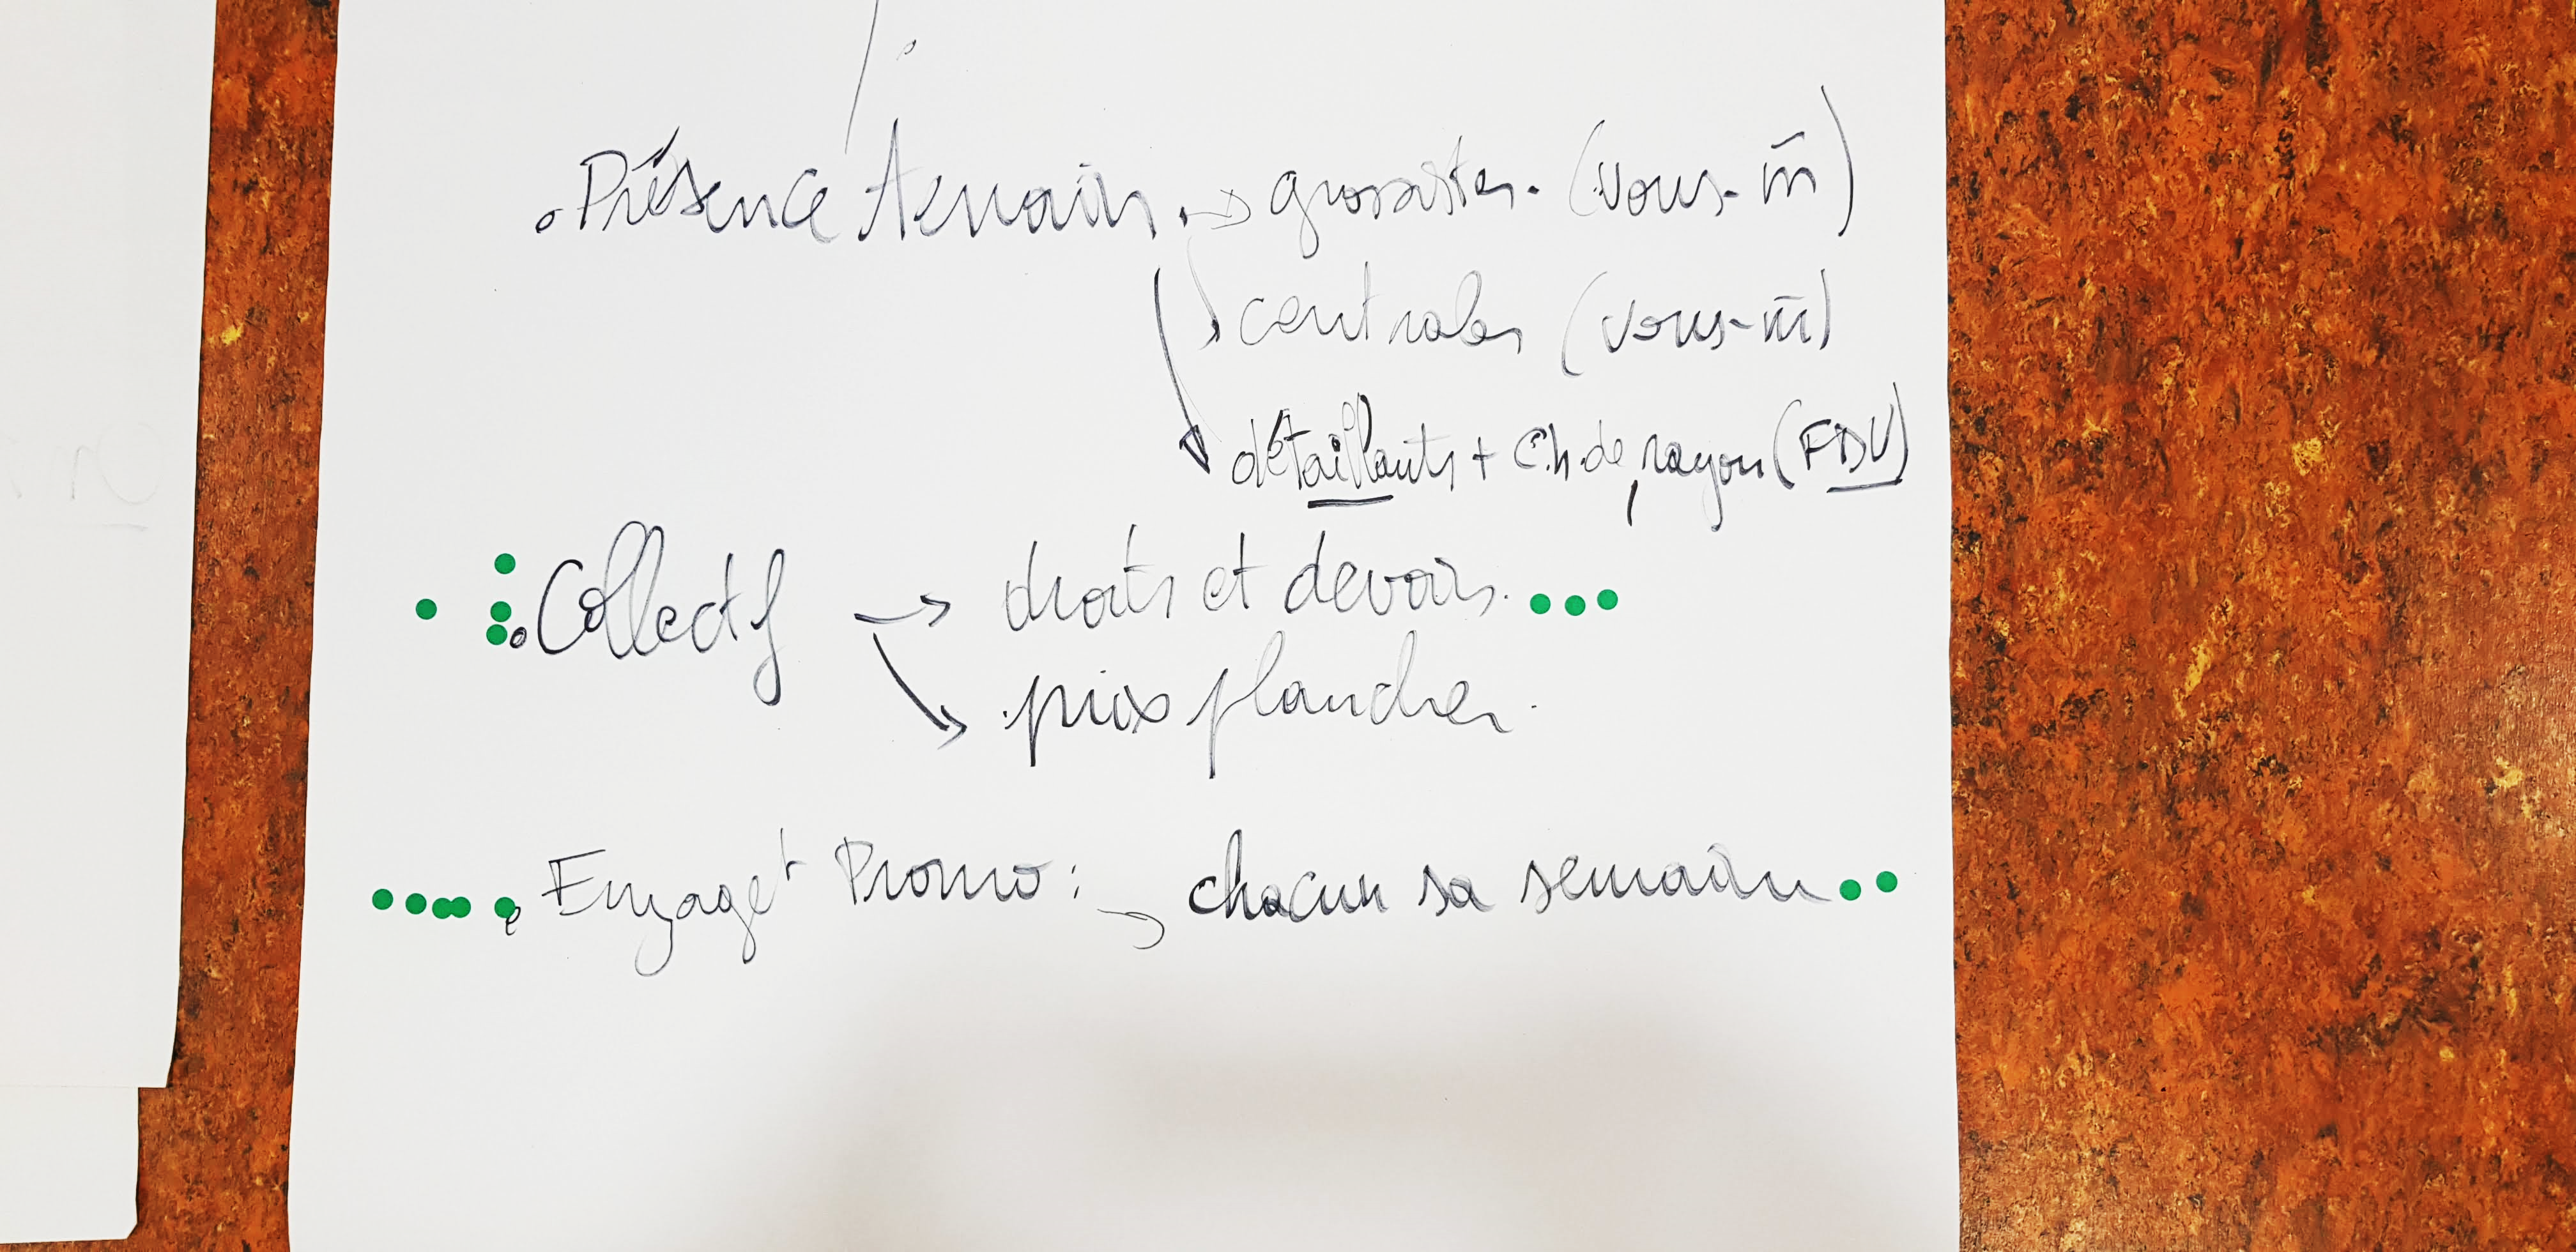 . Présence terrain. → grossistes. (vous-m̄)
centrales (vous-m̄)
détaillants + Ch. de rayon (FDV)
. Collectif → droits et devoirs.
→ prix plancher.
. Engaget Promo : → chacun sa semaine